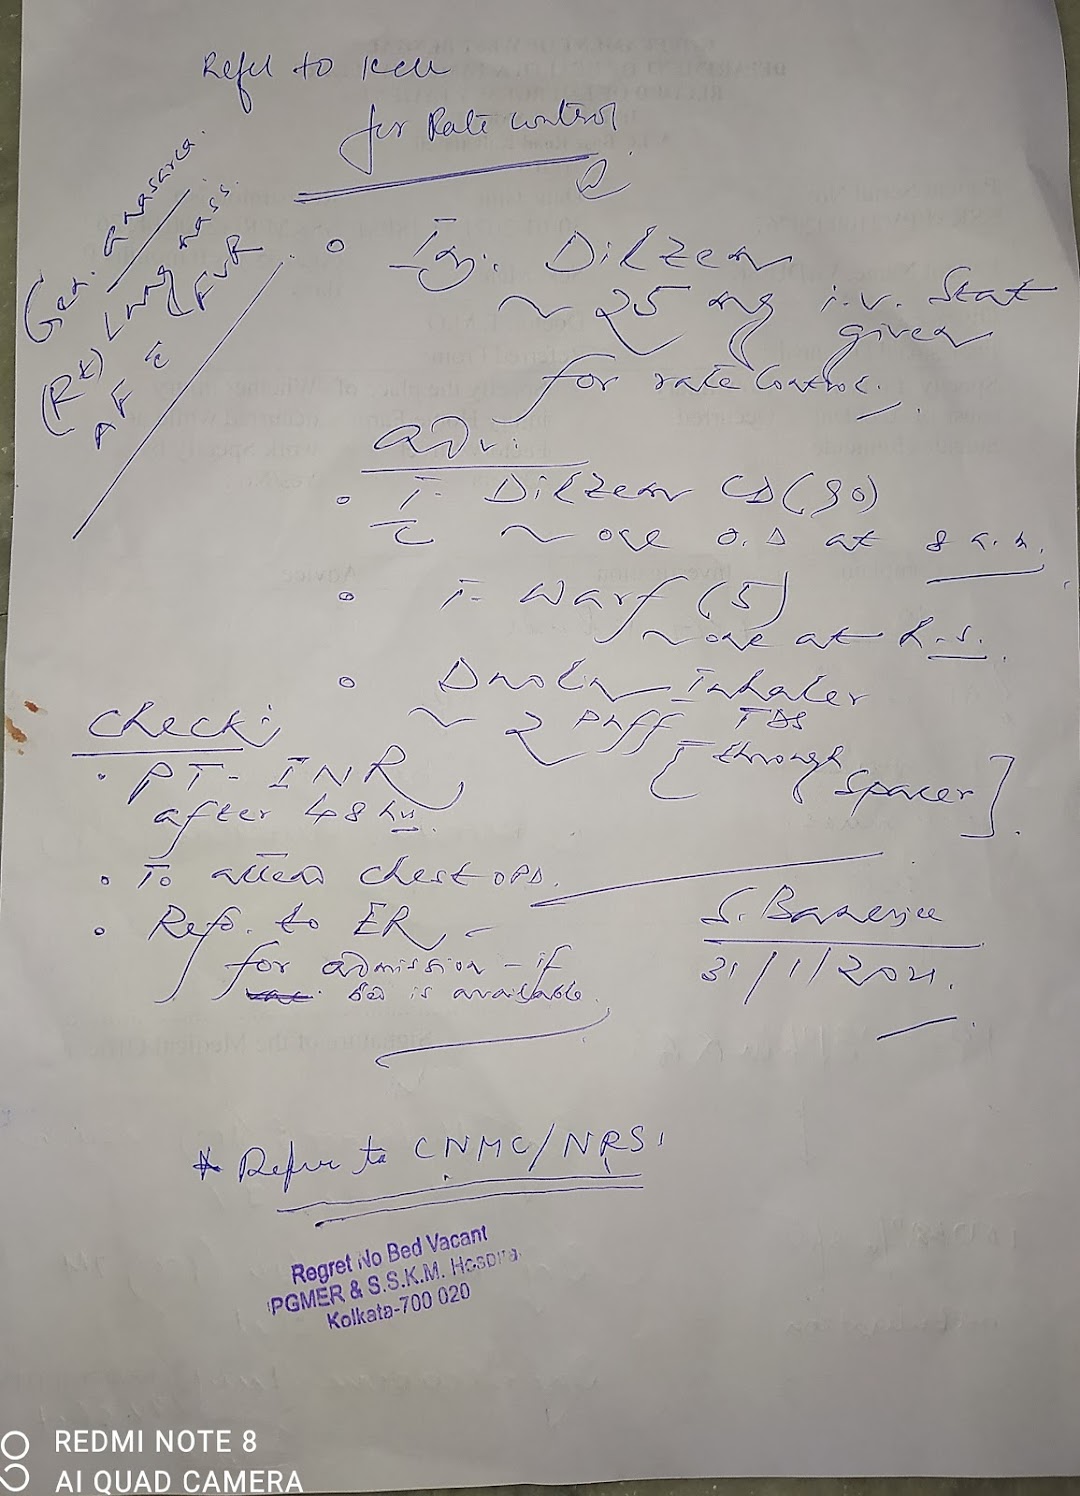 Refer to ICCU
for Rate control
Gen. anasarca.
(Rt) Lung mass.
AF c̄ FVR
Inj. Dilzem
~ 25 mg i.v. Stat
given
for rate control.
Adv:
T. Dilzem CD (90)
~ one O.D at 8 a.m.
T. Warf (5)
~ one at h.s.
Duolin Inhaler
~ 2 puff TDS
[through
Spacer].
Check:
PT-INR
after 48 hrs.
To attend chest OPD.
Ref. to ER
for admission - if
bed is available.
S. Banerjee
31/1/2021.
* Refer to CNMC/NRS.
Regret No Bed Vacant
IPGMER & S.S.K.M. Hospital
Kolkata-700 020
REDMI NOTE 8
AI QUAD CAMERA